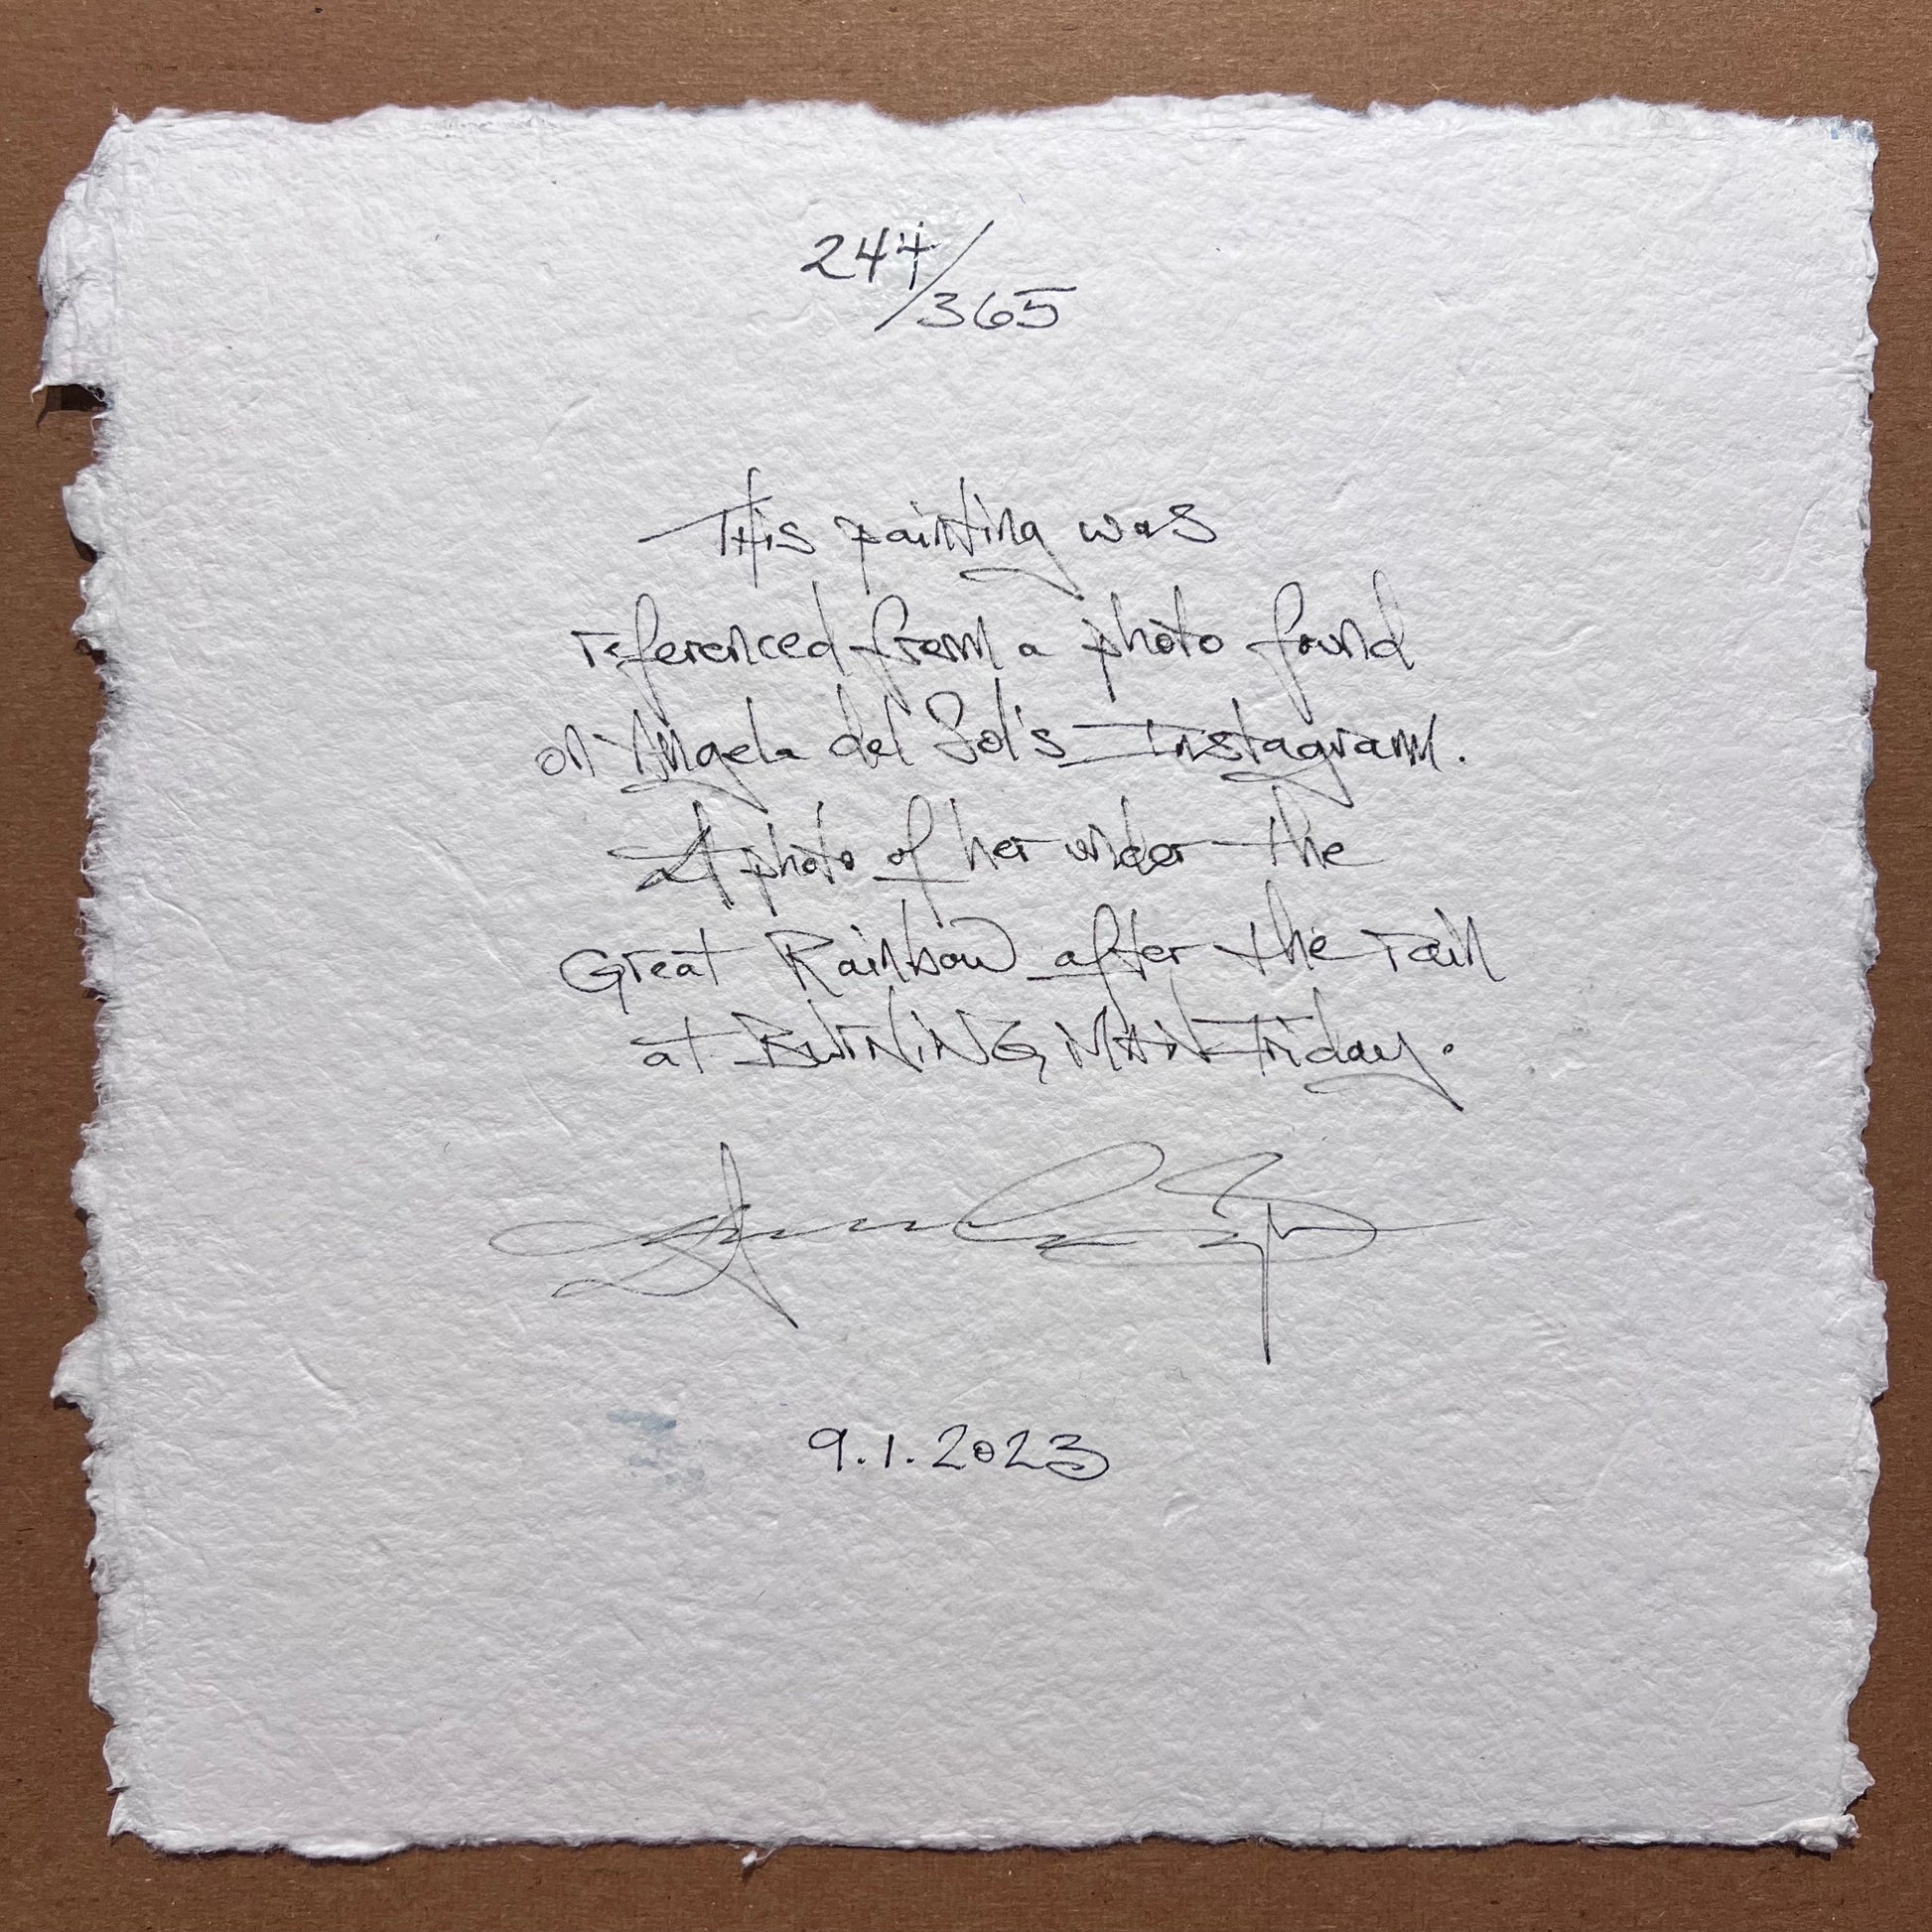 244/365
This painting was
referenced from a photo found
on Angela del Sol's Instagram.
A photo of her under the
Great Rainbow after the rain
at BURNING MAN Friday.
9.1.2023